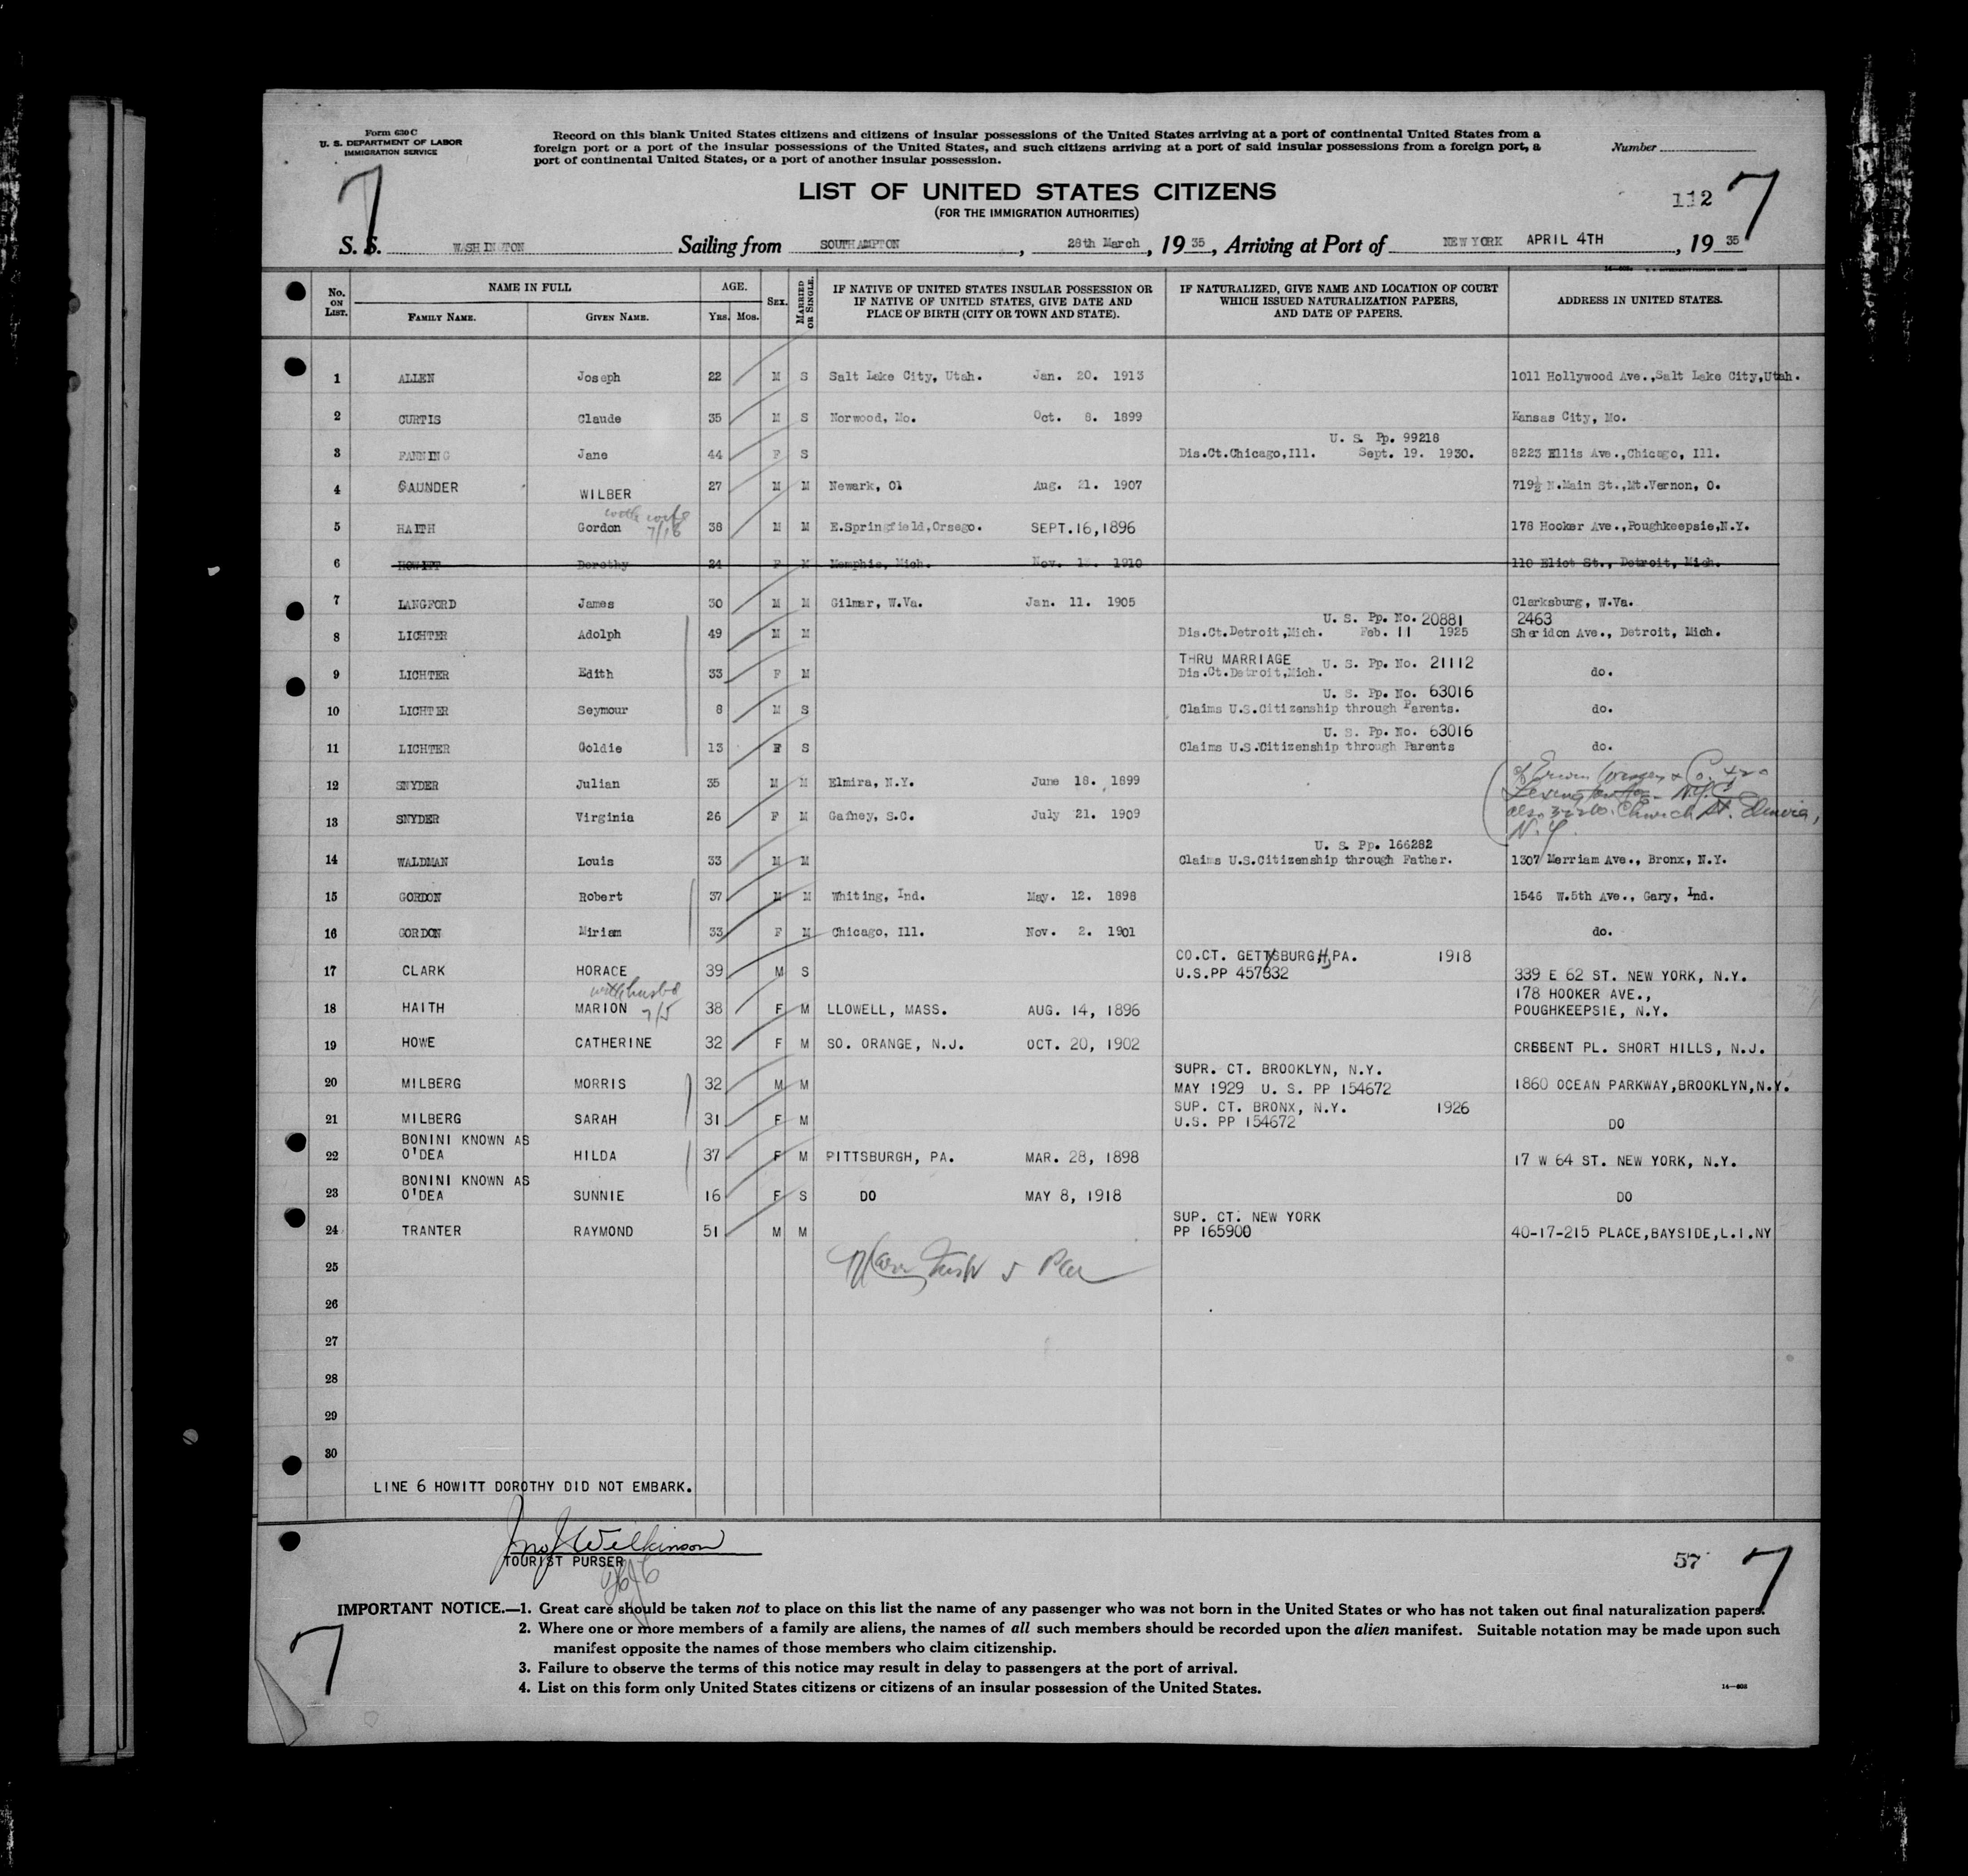 Form 630 C
U. S. DEPARTMENT OF LABOR
IMMIGRATION SERVICE
Record on this blank United States citizens and citizens of insular possessions of the United States arriving at a port of continental United States from a
foreign port or a port of the insular possessions of the United States, and such citizens arriving at a port of said insular possessions from a foreign port, a
port of continental United States, or a port of another insular possession.
Number
7
LIST OF UNITED STATES CITIZENS
(FOR THE IMMIGRATION AUTHORITIES)
112 7
S. S. WASHINGTON Sailing from SOUTHAMPTON, 28th March, 19 35, Arriving at Port of NEW YORK APRIL 4TH, 19 35
No. ON LIST. NAME IN FULL FAMILY NAME. GIVEN NAME. AGE. YRS. MOS. SEX. MARRIED OR SINGLE. IF NATIVE OF UNITED STATES INSULAR POSSESSION OR IF NATIVE OF UNITED STATES, GIVE DATE AND PLACE OF BIRTH (CITY OR TOWN AND STATE). IF NATURALIZED, GIVE NAME AND LOCATION OF COURT WHICH ISSUED NATURALIZATION PAPERS, AND DATE OF PAPERS. ADDRESS IN UNITED STATES.
1 ALLEN Joseph 22 M S Salt Lake City, Utah. Jan. 20. 1913 1011 Hollywood Ave.,Salt Lake City,Utah.
2 CURTIS Claude 35 M S Norwood, Mo. Oct. 8. 1899 Kansas City, Mo.
U. S. Pp. 99218
3 FANNING Jane 44 F S Dis.Ct.Chicago,Ill. Sept. 19. 1930. 8223 Ellis Ave.,Chicago, Ill.
4 GAUNDER WILBER 27 M M Newark, Ol Aug. 21. 1907 719½ N.Main St.,Mt.Vernon, O.
with wife
5 HAITH Gordon 7/18 38 M M E.Springfield,Orsego. SEPT.16,1896 178 Hooker Ave.,Poughkeepsie,N.Y.
6 HOWITT Dorothy 24 F M Memphis, Mich. Nov. 1910 110 Eliot St., Detroit, Mich.
7 LANGFORD James 30 M M Gilmar, W.Va. Jan. 11. 1905 Clarksburg, W.Va.
U. S. Pp. No. 20881 2463
8 LICHTER Adolph 49 M M Dis.Ct.Detroit,Mich. Feb. 11 1925 Sheridon Ave., Detroit, Mich.
THRU MARRIAGE U. S. Pp. No. 21112
9 LICHTER Edith 33 F M Dis.Ct.Detroit,Mich. do.
U. S. Pp. No. 63016
10 LICHTER Seymour 8 M S Claims U.S.Citizenship through Parents. do.
U. S. Pp. No. 63016
11 LICHTER Goldie 13 F S Claims U.S.Citizenship through Parents do.
12 SNYDER Julian 35 M M Elmira, N.Y. June 18. 1899 Erwin & Co. 420
Lexington Ave. N.Y.C.
13 SNYDER Virginia 26 F M Gafney, S.C. July 21. 1909 also Church St. Elmira,
N.Y.
U. S. Pp. 166282
14 WALDMAN Louis 33 M M Claims U.S.Citizenship through Father. 1307 Merriam Ave., Bronx, N.Y.
15 GORDON Robert 37 M M Whiting, Ind. May. 12. 1898 1546 W.5th Ave., Gary, Ind.
16 GORDON Miriam 33 F M Chicago, Ill. Nov. 2. 1901 do.
CO.CT. GETTYSBURG, PA. 1918
17 CLARK HORACE 39 M S U.S.PP 457332 339 E 62 ST. NEW YORK, N.Y.
with husbd 178 HOOKER AVE.,
18 HAITH MARION 7/5 38 F M LLOWELL, MASS. AUG. 14, 1896 POUGHKEEPSIE, N.Y.
19 HOWE CATHERINE 32 F M SO. ORANGE, N.J. OCT. 20, 1902 CRESENT PL. SHORT HILLS, N.J.
SUPR. CT. BROOKLYN, N.Y.
20 MILBERG MORRIS 32 M M MAY 1929 U. S. PP 154672 1860 OCEAN PARKWAY,BROOKLYN,N.Y.
SUP. CT. BRONX, N.Y. 1926
21 MILBERG SARAH 31 F M U.S. PP 154672 DO
BONINI KNOWN AS
22 O'DEA HILDA 37 F M PITTSBURGH, PA. MAR. 28, 1898 17 W 64 ST. NEW YORK, N.Y.
BONINI KNOWN AS
23 O'DEA SUNNIE 16 F S DO MAY 8, 1918 DO
SUP. CT. NEW YORK
24 TRANTER RAYMOND 51 M M PP 165900 40-17-215 PLACE,BAYSIDE,L.I.NY
25
26
27
28
29
30
LINE 6 HOWITT DOROTHY DID NOT EMBARK.
Jno J Wilkinson
TOURIST PURSER
57 7
IMPORTANT NOTICE.—1. Great care should be taken not to place on this list the name of any passenger who was not born in the United States or who has not taken out final naturalization papers.
2. Where one or more members of a family are aliens, the names of all such members should be recorded upon the alien manifest. Suitable notation may be made upon such
manifest opposite the names of those members who claim citizenship.
3. Failure to observe the terms of this notice may result in delay to passengers at the port of arrival.
4. List on this form only United States citizens or citizens of an insular possession of the United States.
7
14—608